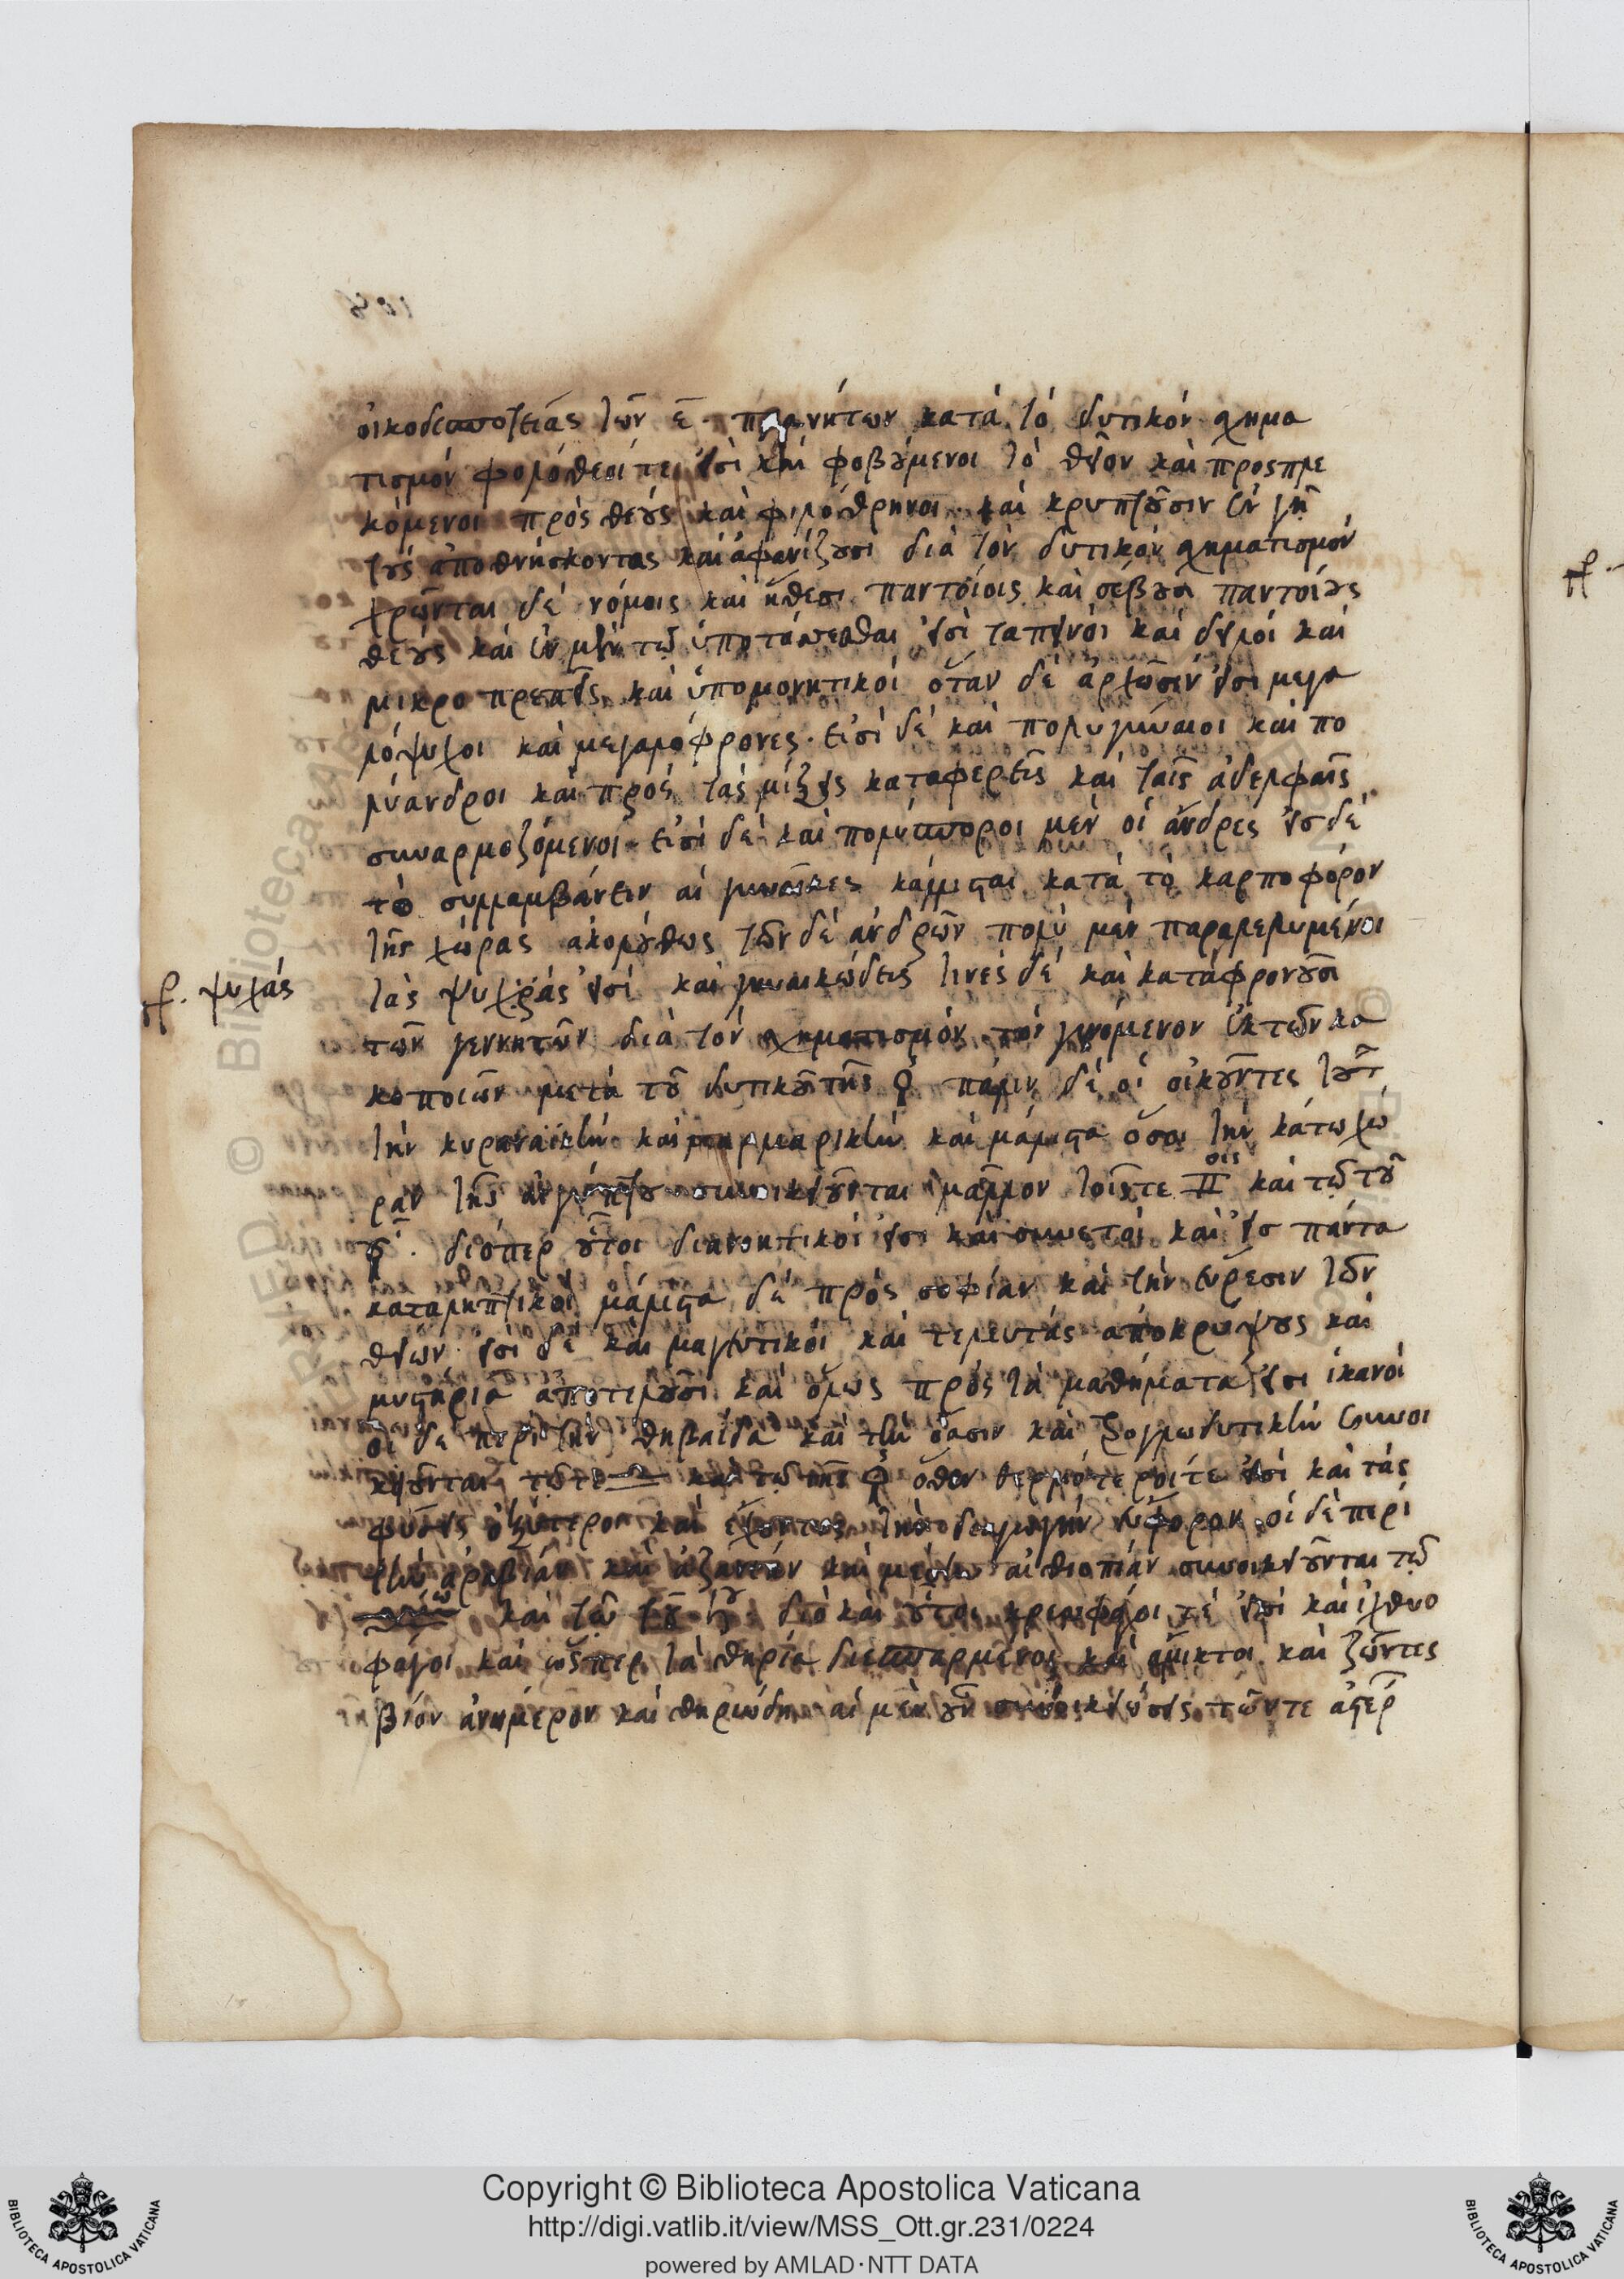 οἰκοδεσποτείας τῶν ε̄ πλανήτων κατὰ τὸ δυτικὸν σχημα
τισμόν φιλόθεοί τέ εἰσὶ καὶ φοβούμενοι τὸ θεῖον καὶ προσπλε
κόμενοι πρὸς θεοὺς καὶ φιλόθρηνοι καὶ κρυπτοῦσιν ἐν γῇ
τοὺς ἀποθνήσκοντας καὶ ἀφανίζουσι διὰ τὸν δυτικὸν σχηματισμόν
χρῶνται δὲ νόμοις καὶ ἤθεσι παντοίοις καὶ σέβουσι παντοίους
θεοὺς καὶ ἐν μὲν τῷ ὑποτάσσεσθαι εἰσὶ ταπεινοὶ καὶ δειλοὶ καὶ
μικροπρεπεῖς καὶ ὑπομονητικοὶ ὅταν δὲ ἄρχωσιν εἰσι μεγα
λόψυχοι καὶ μεγαλόφρονες. εἰσὶ δὲ καὶ πολυγύναιοι καὶ πο
λύανδροι καὶ πρὸς τὰς μίξεις καταφερεῖς καὶ ταῖς ἀδελφαῖς
συναρμοζόμενοι. εἰσὶ δὲ καὶ πολύσποροι μὲν οἱ ἄνδρες εἰσ δὲ
τὸ συλλαμβάνειν αἱ γυναῖκες κάλλισται κατὰ τὸ καρποφόρον
τῆς χώρας ἀκολούθως τῶν δὲ ἀνδρῶν πολὺ μὲν παραλελυμένοι
γρ. ψυχάς τὰς ψυχρὰς εἰσὶ καὶ γυναικώδεις τινὲς δὲ καὶ καταφρονοῦσι
τῶν γεννητῶν διὰ τὸν σχηματισμὸν τὸν γινόμενον ἐκ τῶν κα
κοποιῶν μετὰ τοῦ δυτικοῦ τῆς ♀ πάλιν δὲ οἱ οἰκοῦντες
τὴν κυρηναϊκὴν καὶ μαρμαρικὴν καὶ μάλιστα ὅσοι τὴν κάτω χώ
ραν τῆς αἰγύπτου συνοικειοῦνται μᾶλλον τοῖς τε ♊οις καὶ τῷ τοῦ
☿. διόπερ οὗτοι διανοητικοί εἰσι καὶ συνετοὶ καὶ εἰσ πάντα
καταληπτικοὶ μάλιστα δὲ πρὸς σοφίαν καὶ τὴν εὕρεσιν τῶν
θείων εἰσὶ δὲ καὶ μαγευτικοὶ καὶ τελευτὰς ἀποκρύφους καὶ
μυστήρια ἀποτελοῦσι καὶ ὅλως πρὸς τὰ μαθήματα εἰσι ἱκανοὶ
οἱ δὲ περὶ τὴν θηβαΐδα καὶ τὴν ὄασιν καὶ τρογλωδυτικὴν συνοι
κειοῦνται τῷ τε ♎ καὶ τῷ τῆς ♀ ὅθεν θερμότεροί τέ εἰσὶ καὶ τὰς
φύσεις ὀξύτεροι καὶ ἔχοντες τὴν διαγωγὴν εὔφορον οἱ δὲ περὶ
τὴν ἀραβίαν καὶ ἀζανίαν καὶ μέσην αἰθιοπίαν συνοικειοῦνται τῷ
♒ῳ καὶ τῷ τοῦ ♄ου διὸ καὶ οὗτοι κρεωφάγοι τέ εἰσὶ καὶ ἰχθυο
φάγοι καὶ ὥσπερ τὰ θηρία διεσπαρμένοι καὶ ἄμικτοι καὶ ζῶντες
βίον ἀνήμερον καὶ θηριώδη αἱ μὲν οὖν συνοικειώσεις τῶν τε ἀστέρ
Copyright © Biblioteca Apostolica Vaticana
http://digi.vatlib.it/view/MSS_Ott.gr.231/0224
powered by AMLAD·NTT DATA
BIBLIOTECA APOSTOLICA VATICANA
BIBLIOTECA APOSTOLICA VATICANA